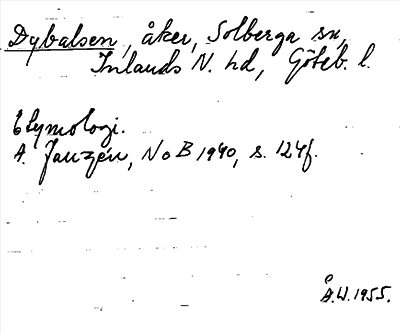 Dybalsen, åker, Solberga sn,
Inlands N. hd, Göteb. l.
Etymologi.
A. Janzén, NoB 1940, s. 124f.
Å.W. 1955.